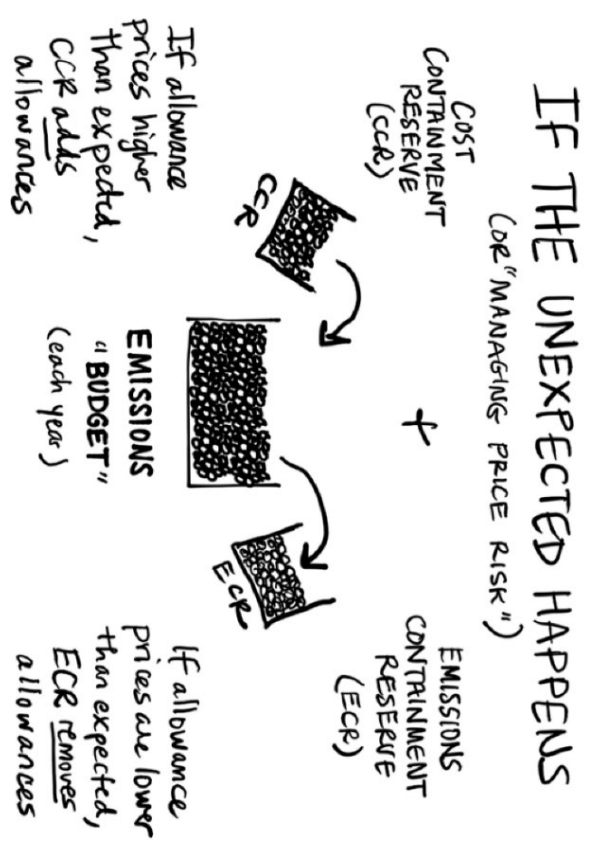 IF THE UNEXPECTED HAPPENS
(OR "MANAGING PRICE RISK")
COST
CONTAINMENT
RESERVE
(CCR)
+
EMISSIONS
CONTAINMENT
RESERVE
(ECR)
CCR
ECR
If allowance
prices higher
than expected,
CCR adds
allowances
EMISSIONS
"BUDGET"
(each year)
If allowance
prices are lower
than expected,
ECR removes
allowances